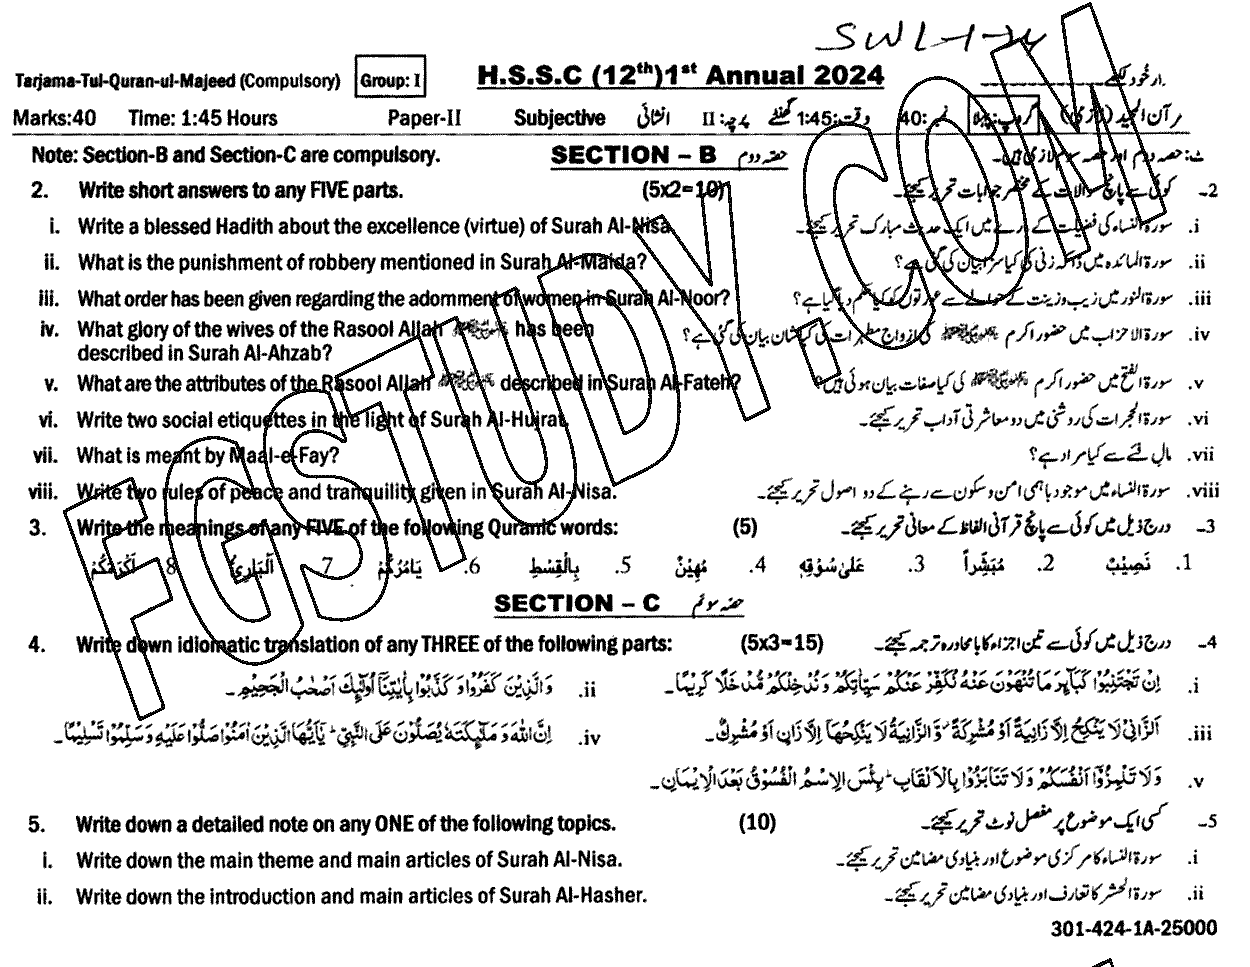 SWL-1-24
Tarjama-Tul-Quran-ul-Majeed (Compulsory) Group: I H.S.S.C (12th) 1st Annual 2024
Marks:40 Time: 1:45 Hours Paper-II Subjective انشائی پرچہ: II وقت: 1:45 گھنٹے نمبر: 40 گروپ: پہلا (لازمی)
Note: Section-B and Section-C are compulsory. SECTION – B حصہ دوم
2. Write short answers to any FIVE parts. (5x2=10) 2۔ کوئی سے پانچ سوالات کے مختصر جوابات تحریر کیجئے۔
i. Write a blessed Hadith about the excellence (virtue) of Surah Al-Nisa. i. سورۃ النساء کی فضیلت کے بارے میں ایک حدیث مبارک تحریر کیجئے۔
ii. What is the punishment of robbery mentioned in Surah Al-Maida? ii. سورۃ المائدہ میں ڈاکہ زنی کی کیا سزا بیان کی گئی ہے؟
iii. What order has been given regarding the adornment of women in Surah Al-Noor? iii. سورۃ النور میں زیب و زینت کے حوالے سے عورتوں کو کیا حکم دیا گیا ہے؟
iv. What glory of the wives of the Rasool Allah has been iv. سورۃ الاحزاب میں حضور اکرم کی ازواج مطہرات کی کیا شان بیان کی گئی ہے؟
described in Surah Al-Ahzab?
v. What are the attributes of the Rasool Allah described in Surah Al-Fateh? v. سورۃ الفتح میں حضور اکرم کی کیا صفات بیان ہوئی ہیں؟
vi. Write two social etiquettes in the light of Surah Al-Hujrat. vi. سورۃ الحجرات کی روشنی میں دو معاشرتی آداب تحریر کیجئے۔
vii. What is meant by Maal-e-Fay? vii. مالِ فئے سے کیا مراد ہے؟
viii. Write two rules of peace and tranquility given in Surah Al-Nisa. viii. سورۃ النساء میں موجود باہمی امن و سکون سے رہنے کے دو اصول تحریر کیجئے۔
3. Write the meanings of any FIVE of the following Quranic words: (5) 3۔ درج ذیل میں کوئی سے پانچ قرآنی الفاظ کے معانی تحریر کیجئے۔
1. نَصِيْبٌ 2. مُبَشِّراً 3. عَلٰى سُوْقِهٖ 4. مُهِيْنٌ 5. بِالْقِسْطِ 6. يَاْمُرُكُمْ 7 اَلْبَارِئُ 8
SECTION – C حصہ سوئم
4. Write down idiomatic translation of any THREE of the following parts: (5x3=15) 4۔ درج ذیل میں کوئی سے تین اجزاء کا بامحاورہ ترجمہ کیجئے۔
i. اِنْ تَجْتَنِبُوْا كَبَآئِرَ مَا تُنْهَوْنَ عَنْهُ نُكَفِّرْ عَنْكُمْ سَيِّاٰتِكُمْ وَ نُدْخِلْكُمْ مُّدْخَلًا كَرِيْمًا۔ ii. وَالَّذِيْنَ كَفَرُوْا وَ كَذَّبُوْا بِاٰيٰتِنَاۤ اُولٰٓئِكَ اَصْحٰبُ الْجَحِيْمِ۔
iii. اَلزَّانِيْ لَا يَنْكِحُ اِلَّا زَانِيَةً اَوْ مُشْرِكَةً وَّ الزَّانِيَةُ لَا يَنْكِحُهَاۤ اِلَّا زَانٍ اَوْ مُشْرِكٌ۔ iv. اِنَّ اللّٰهَ وَ مَلٰٓئِكَتَهٗ يُصَلُّوْنَ عَلَى النَّبِيِّ يٰۤاَيُّهَا الَّذِيْنَ اٰمَنُوْا صَلُّوْا عَلَيْهِ وَ سَلِّمُوْا تَسْلِيْمًا۔
v. وَلَا تَلْمِزُوْۤا اَنْفُسَكُمْ وَلَا تَنَابَزُوْا بِالْاَلْقَابِ بِئْسَ الِاسْمُ الْفُسُوْقُ بَعْدَ الْاِيْمَانِ۔
5. Write down a detailed note on any ONE of the following topics. (10) 5۔ کسی ایک موضوع پر مفصل نوٹ تحریر کیجئے۔
i. Write down the main theme and main articles of Surah Al-Nisa. i. سورۃ النساء کا مرکزی موضوع اور بنیادی مضامین تحریر کیجئے۔
ii. Write down the introduction and main articles of Surah Al-Hasher. ii. سورۃ الحشر کا تعارف اور بنیادی مضامین تحریر کیجئے۔
301-424-1A-25000
FGSTUDY.COM